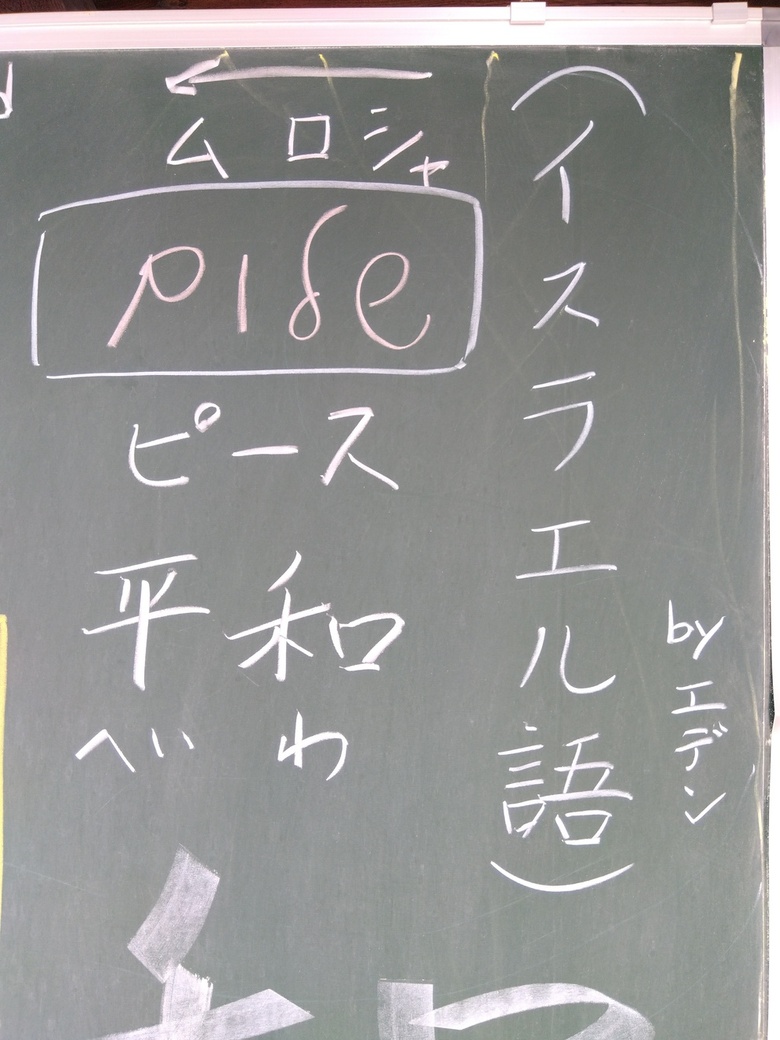 シャロム
שלום
ピース
平和
へいわ
（イスラエル語）
by エデン